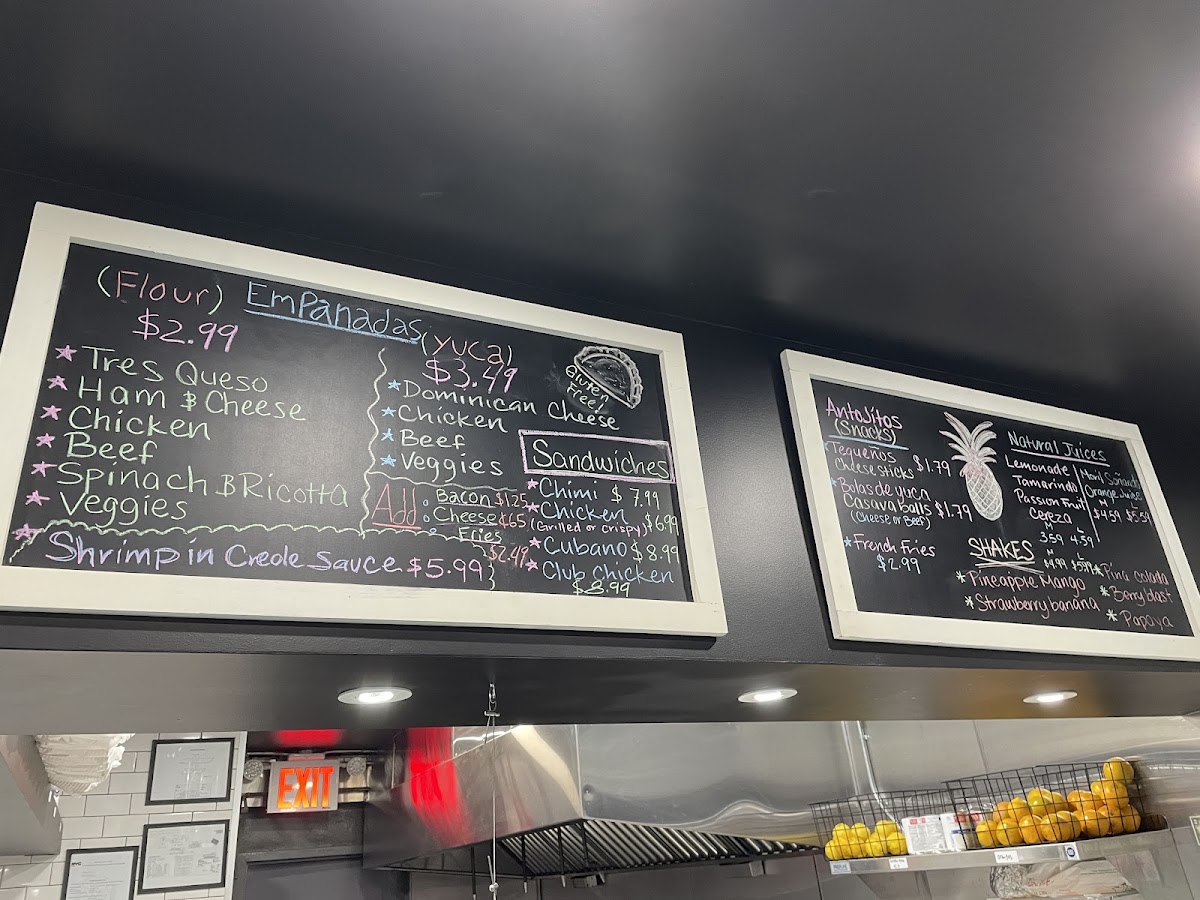 (Flour) Empanadas (yuca)
$2.99
$3.49
Gluten
Free!
Tres Queso
Ham & Cheese
Chicken
Beef
Spinach & Ricotta
Veggies
Shrimp in Creole Sauce $5.99
Dominican Cheese
Chicken
Beef
Veggies
Add
Bacon $1.25
Cheese ¢65
Fries
$2.49
Sandwiches
Chimi $7.99
Chicken $6.99
(Grilled or crispy)
Cubano $8.99
Club Chicken
$8.99
Antojitos
(Snacks)
Tequeños
Cheese sticks $1.79
Bolas de yuca
Casava balls $1.79
(Cheese or Beef)
French Fries
$2.99
Natural Juices
Lemonade
Tamarindo
Passion Fruit
Cereza
M L
3.59 4.59
Morir Soñando
Orange Juice
$4.59 $5.59
SHAKES
M L
$4.99 $5.99
Pineapple Mango
Strawberry banana
Pina colada
Berry blast
Papaya
EXIT